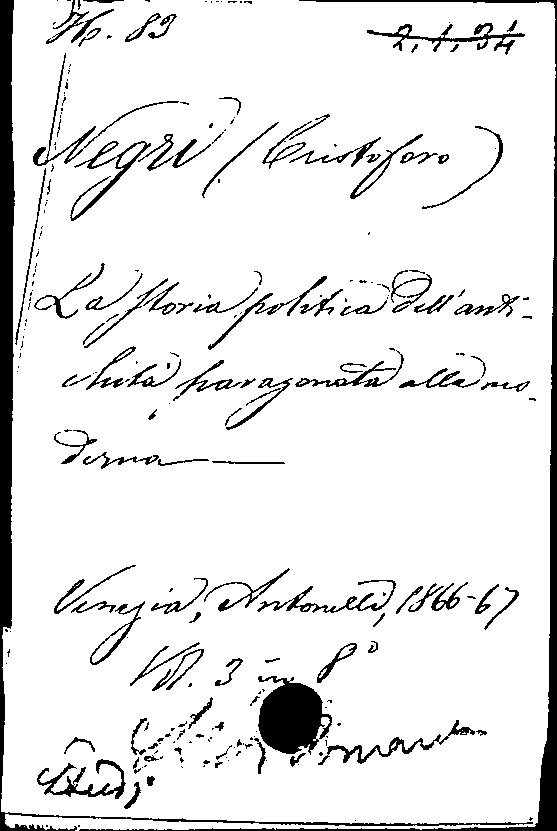 H. 83 2, 1, 34
Negri (Cristoforo)
La storia politica dell'anti-
chità paragonata alla mo-
derna
Venezia, Antonelli, 1866-67
Vol. 3 in 8°
Studj